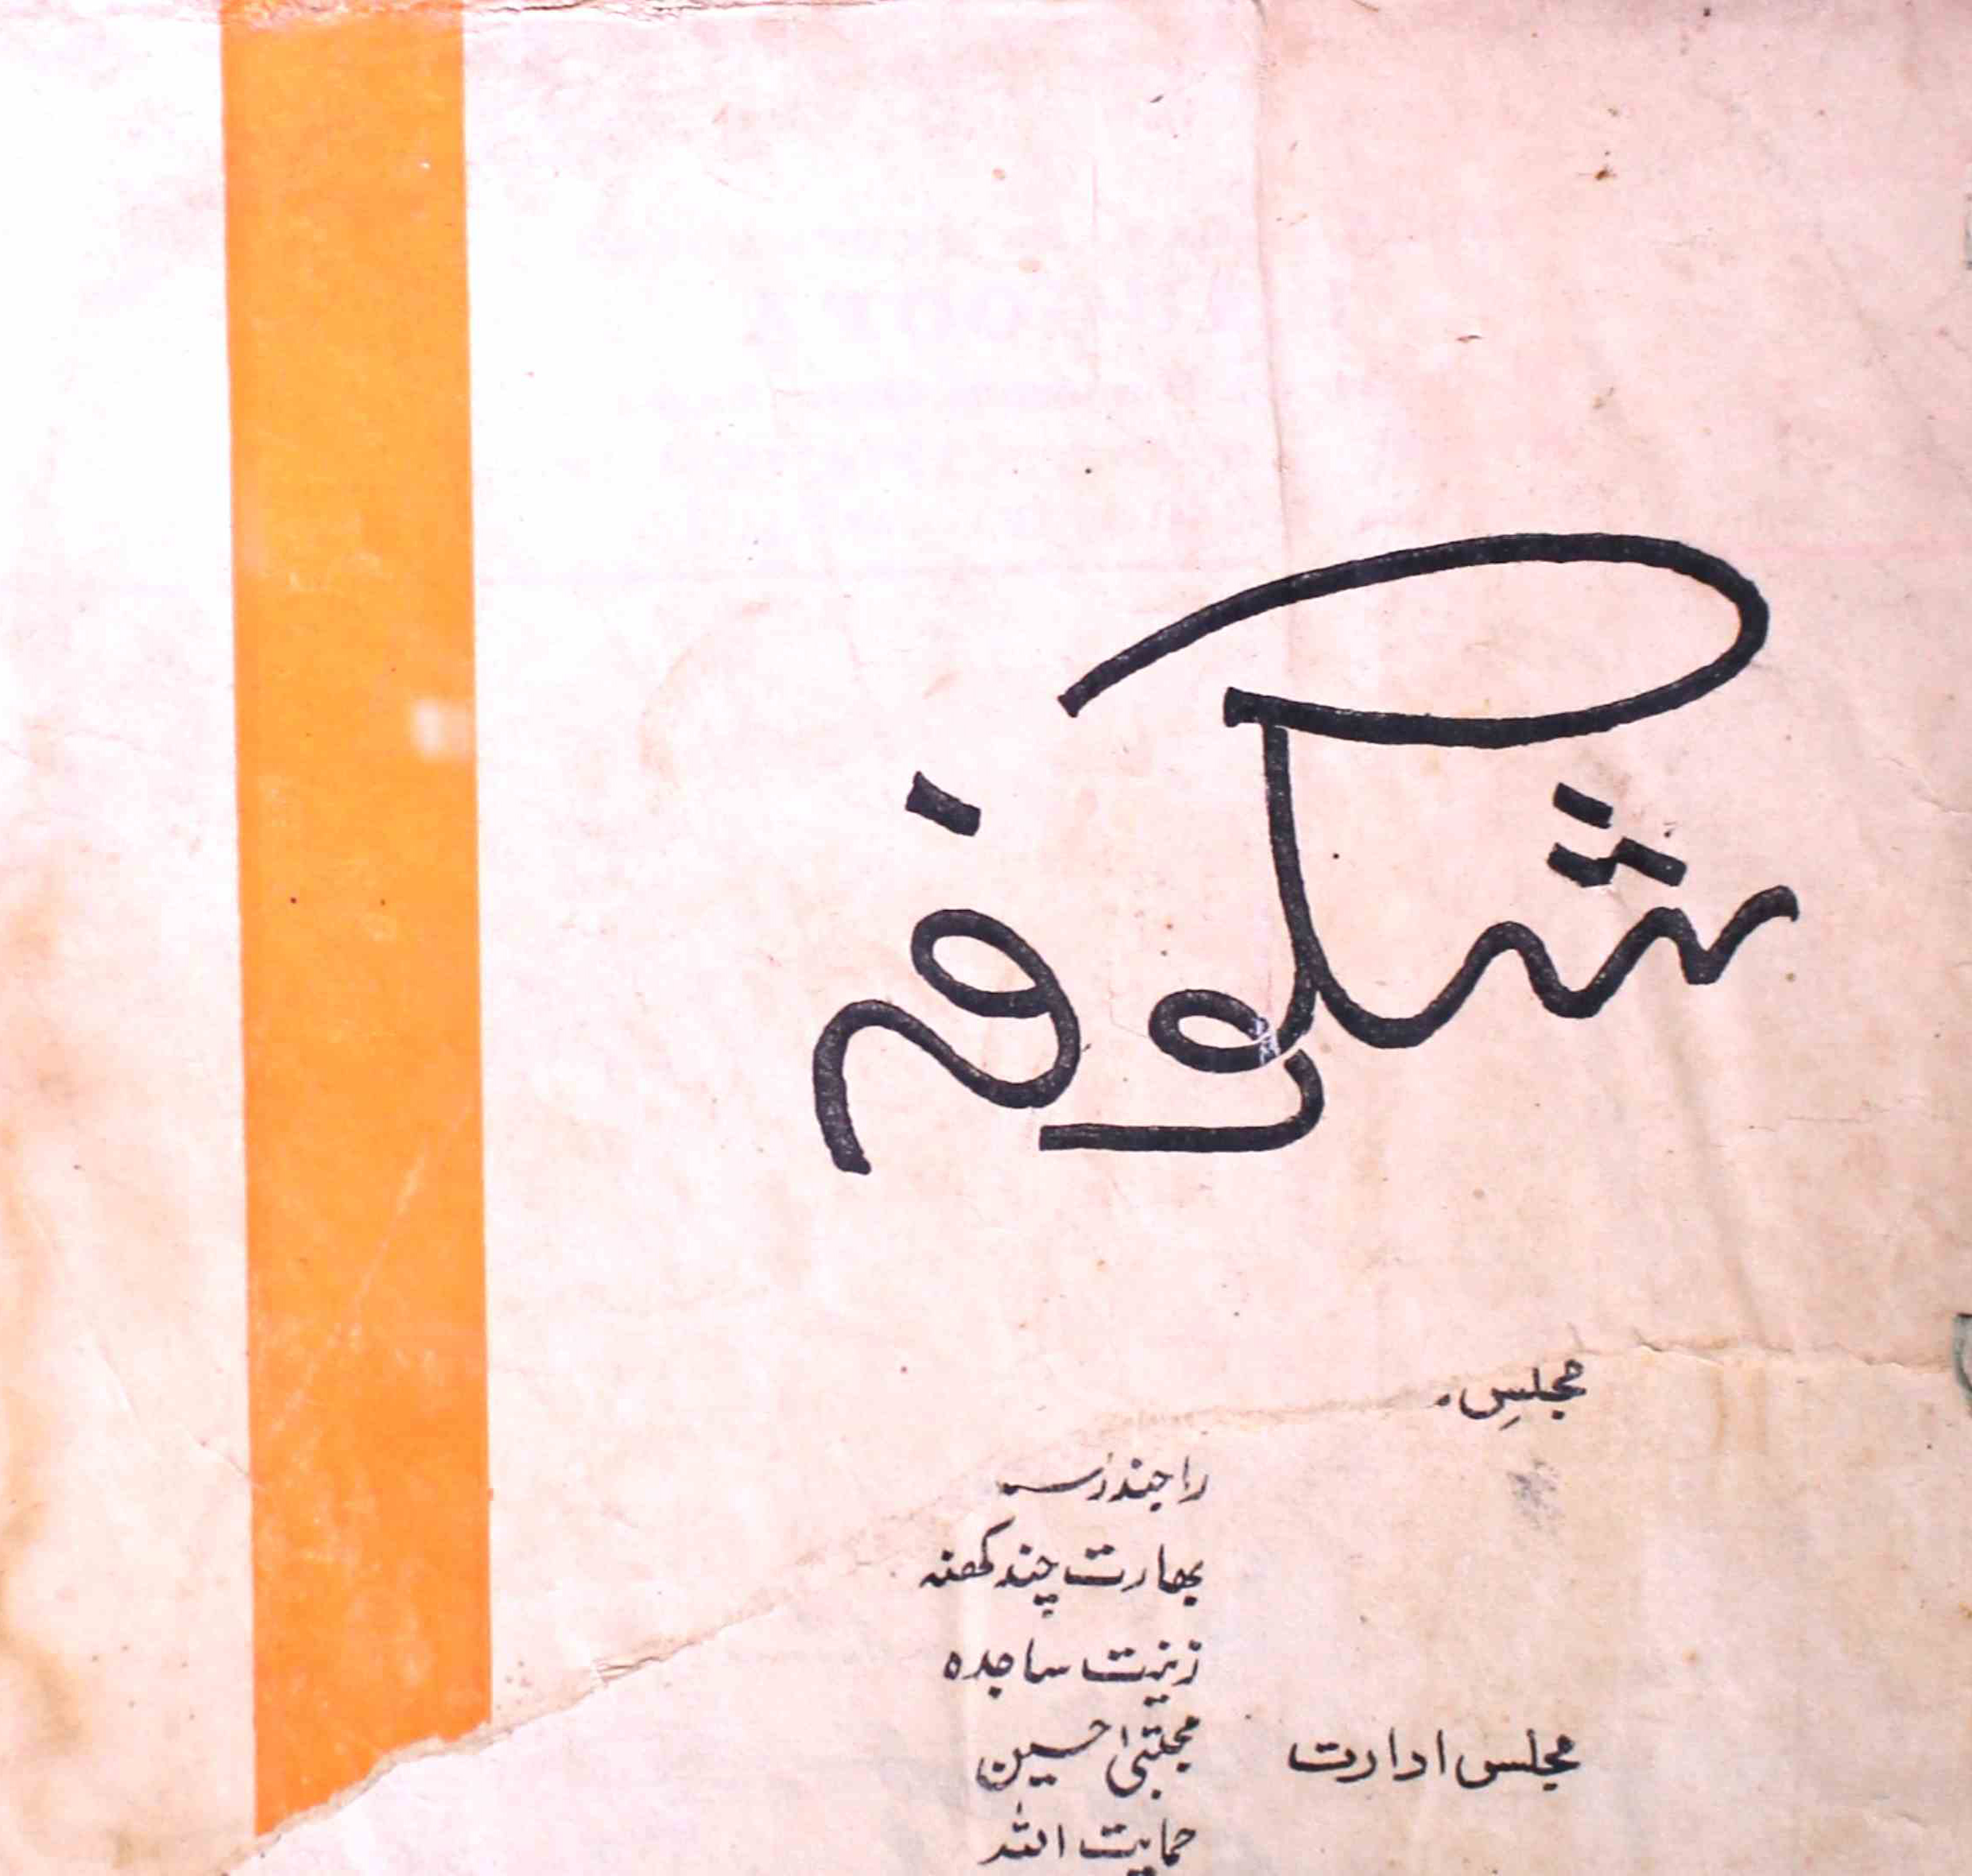 شگوفہ
مجلسِ
بھارت چند کھنہ
زینت ساجدہ
مجلس ادارت مجتبیٰ حسین
حمایت اللہ